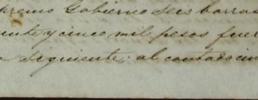 premo Gobierno seis barras
ente y cinco mil pesos fuer
a siguiente: al contado cin